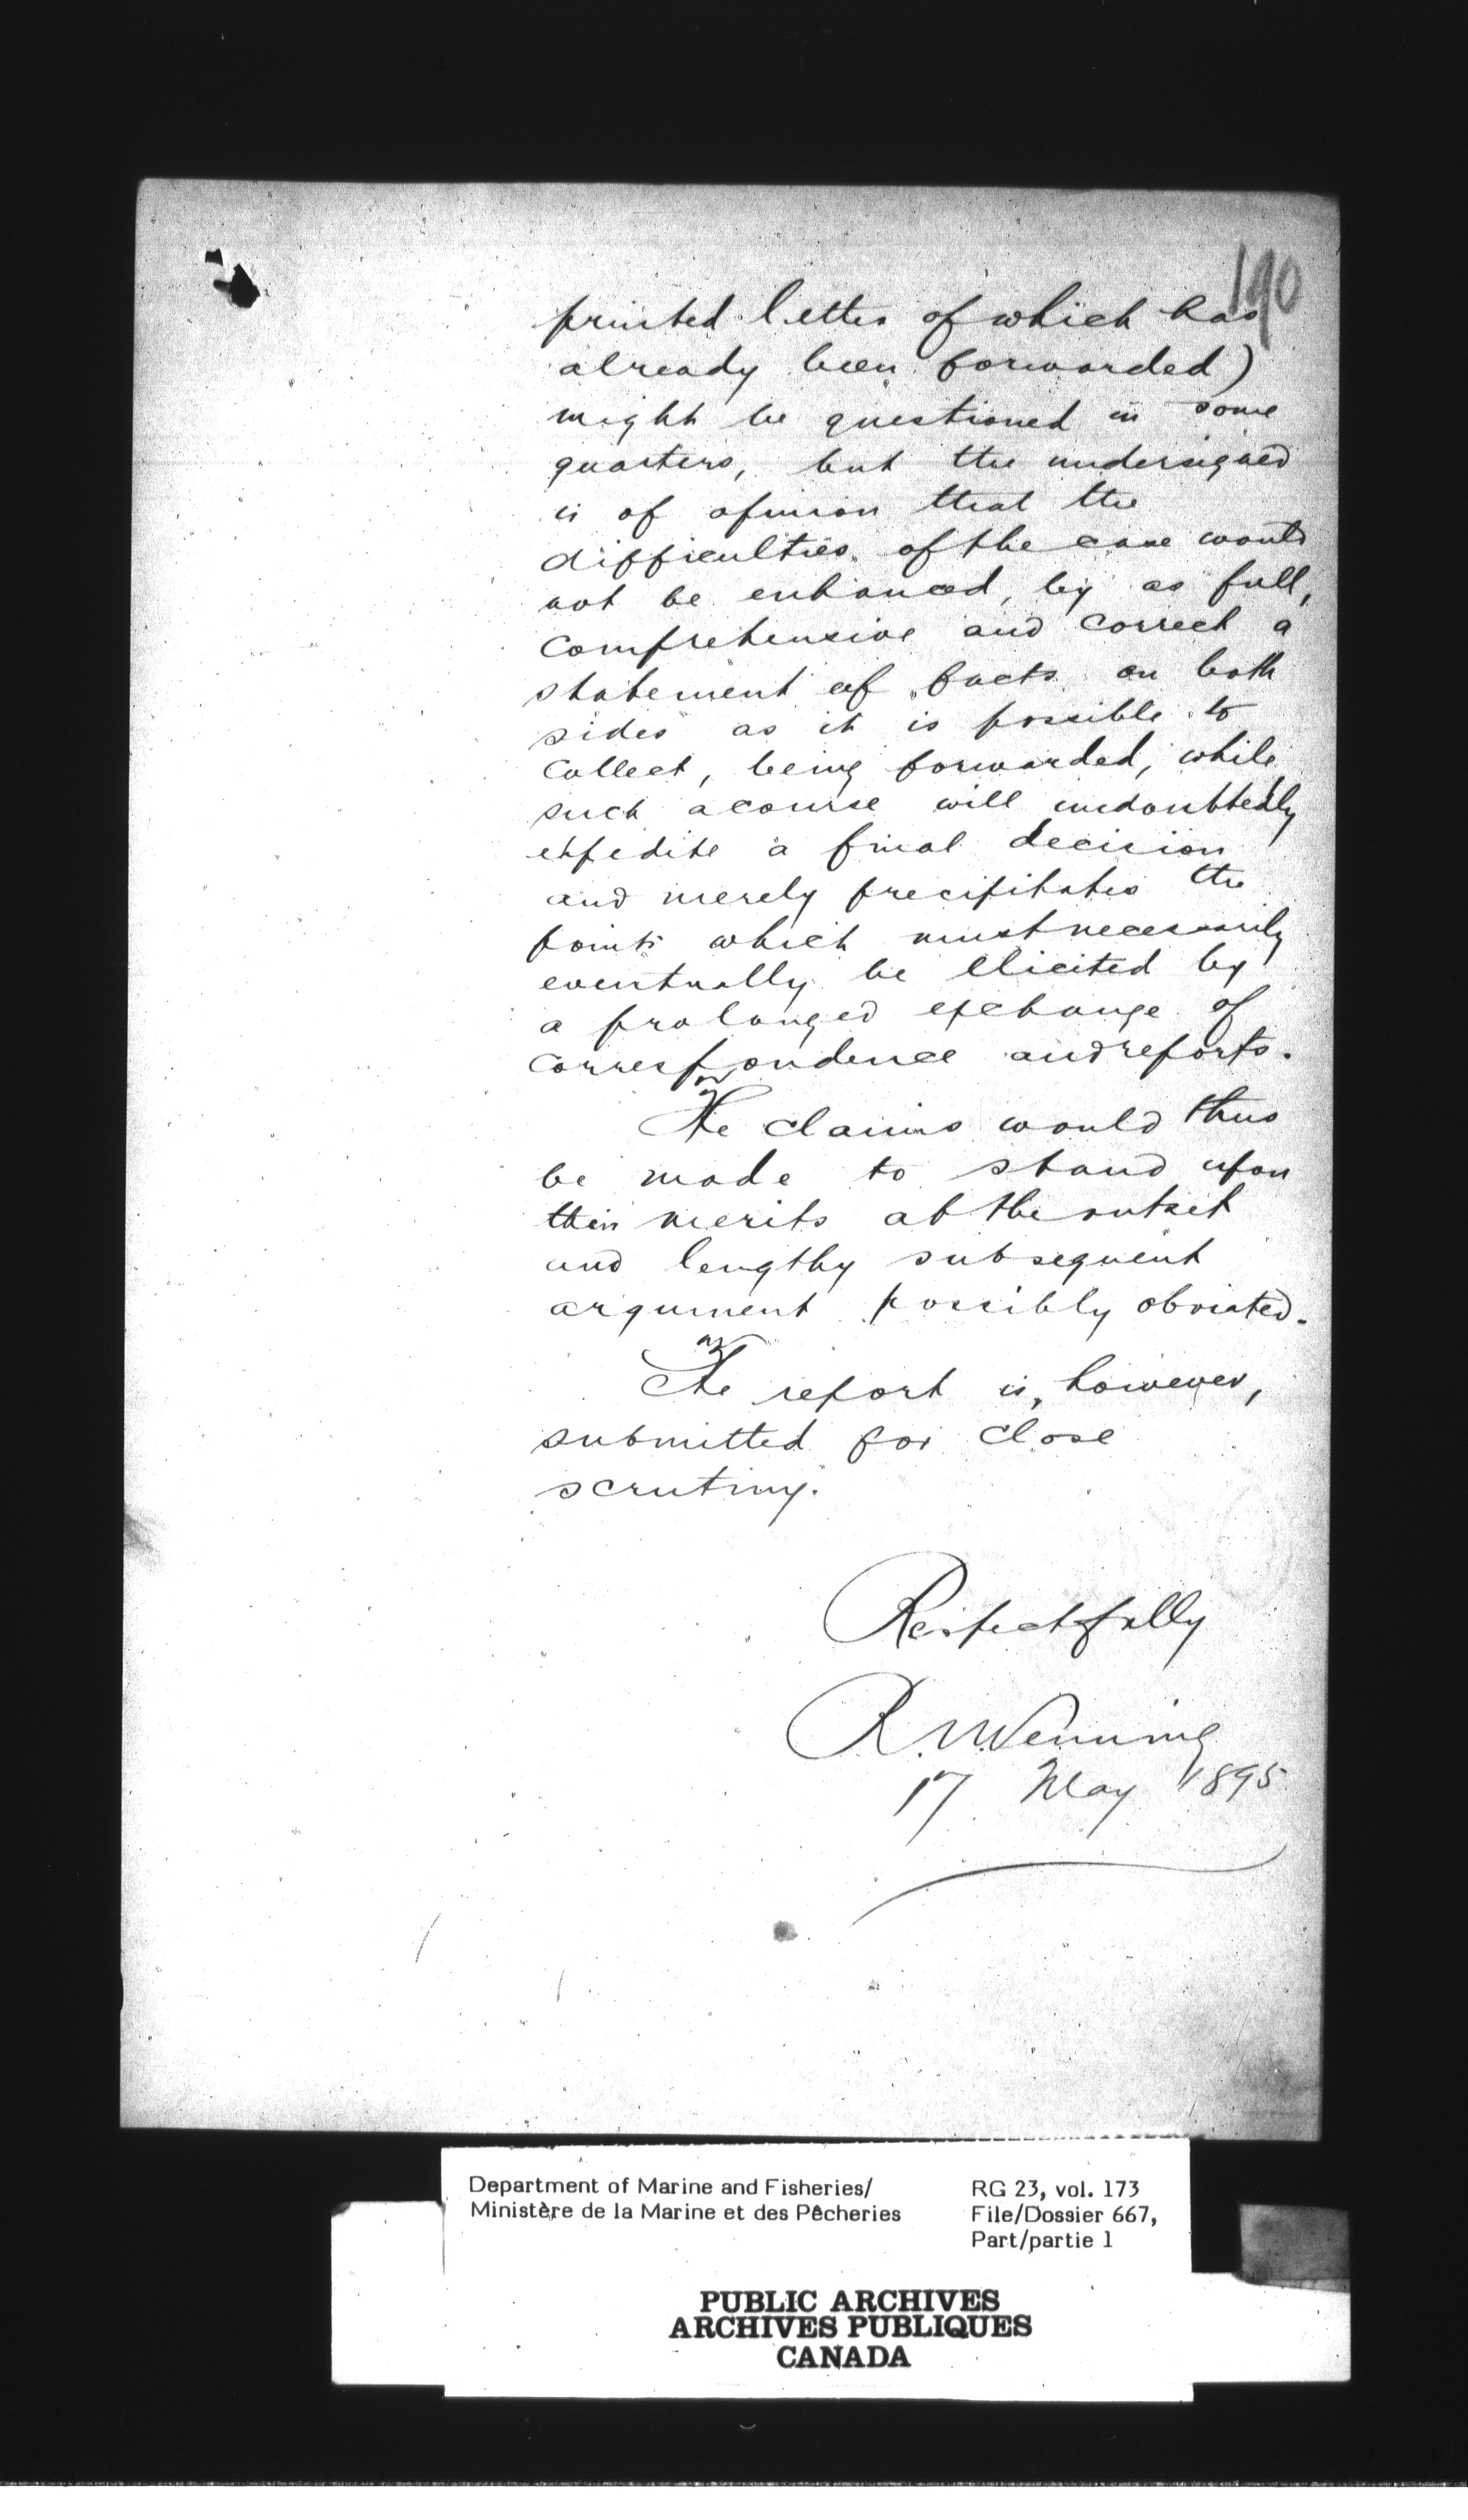 190
printed letter of which has
already been forwarded)
might be questioned in some
quarters, but the undersigned
is of opinion that the
difficulties of the case would
not be enhanced, by as full,
comprehensive and correct a
statement of facts on both
sides as it is possible to
collect, being forwarded, while
such a course will undoubtedly
expedite a final decision
and merely precipitates the
points which must necessarily
eventually be elicited by
a prolonged exchange of
correspondence and reports.
The claims would thus
be made to stand upon
their merits at the outset
and lengthy subsequent
argument possibly obviated.
The report is, however,
submitted for close
scrutiny.
Respectfully
R. N. Venning
17 May 1895
Department of Marine and Fisheries/
Ministère de la Marine et des Pêcheries
RG 23, vol. 173
File/Dossier 667,
Part/partie 1
PUBLIC ARCHIVES
ARCHIVES PUBLIQUES
CANADA